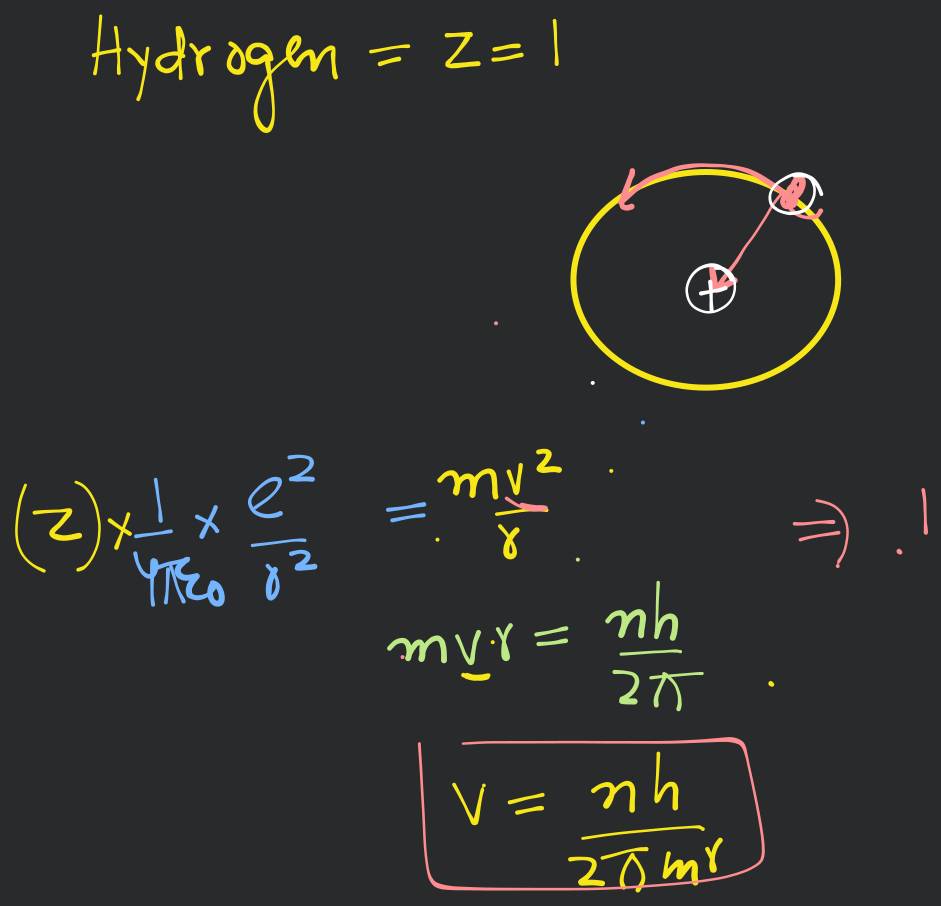 Hydrogen = Z = 1
+
(Z) × 1/4πε₀ × e²/r² = mv²/r ⇒ . 1
mvr = nh/2π
v = nh/2πmr